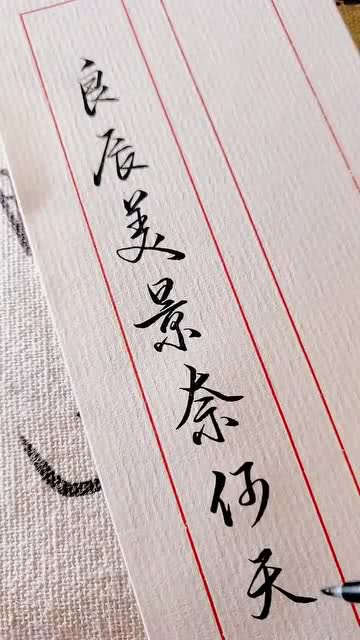 良辰美景奈何天